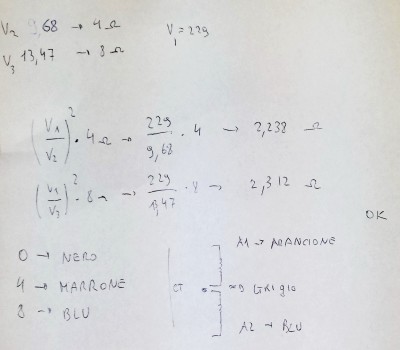 V2 9,68 → 4 Ω V1 = 229
V3 13,47 → 8 Ω
(V1/V2)² · 4Ω → 229/9,68 · 4 → 2,238 Ω
(V1/V3)² · 8Ω → 229/13,47 · 8 → 2,312 Ω
OK
0 → NERO
4 → MARRONE
8 → BLU
A1 → ARANCIONE
CT GRIGIO
A2 → BLU